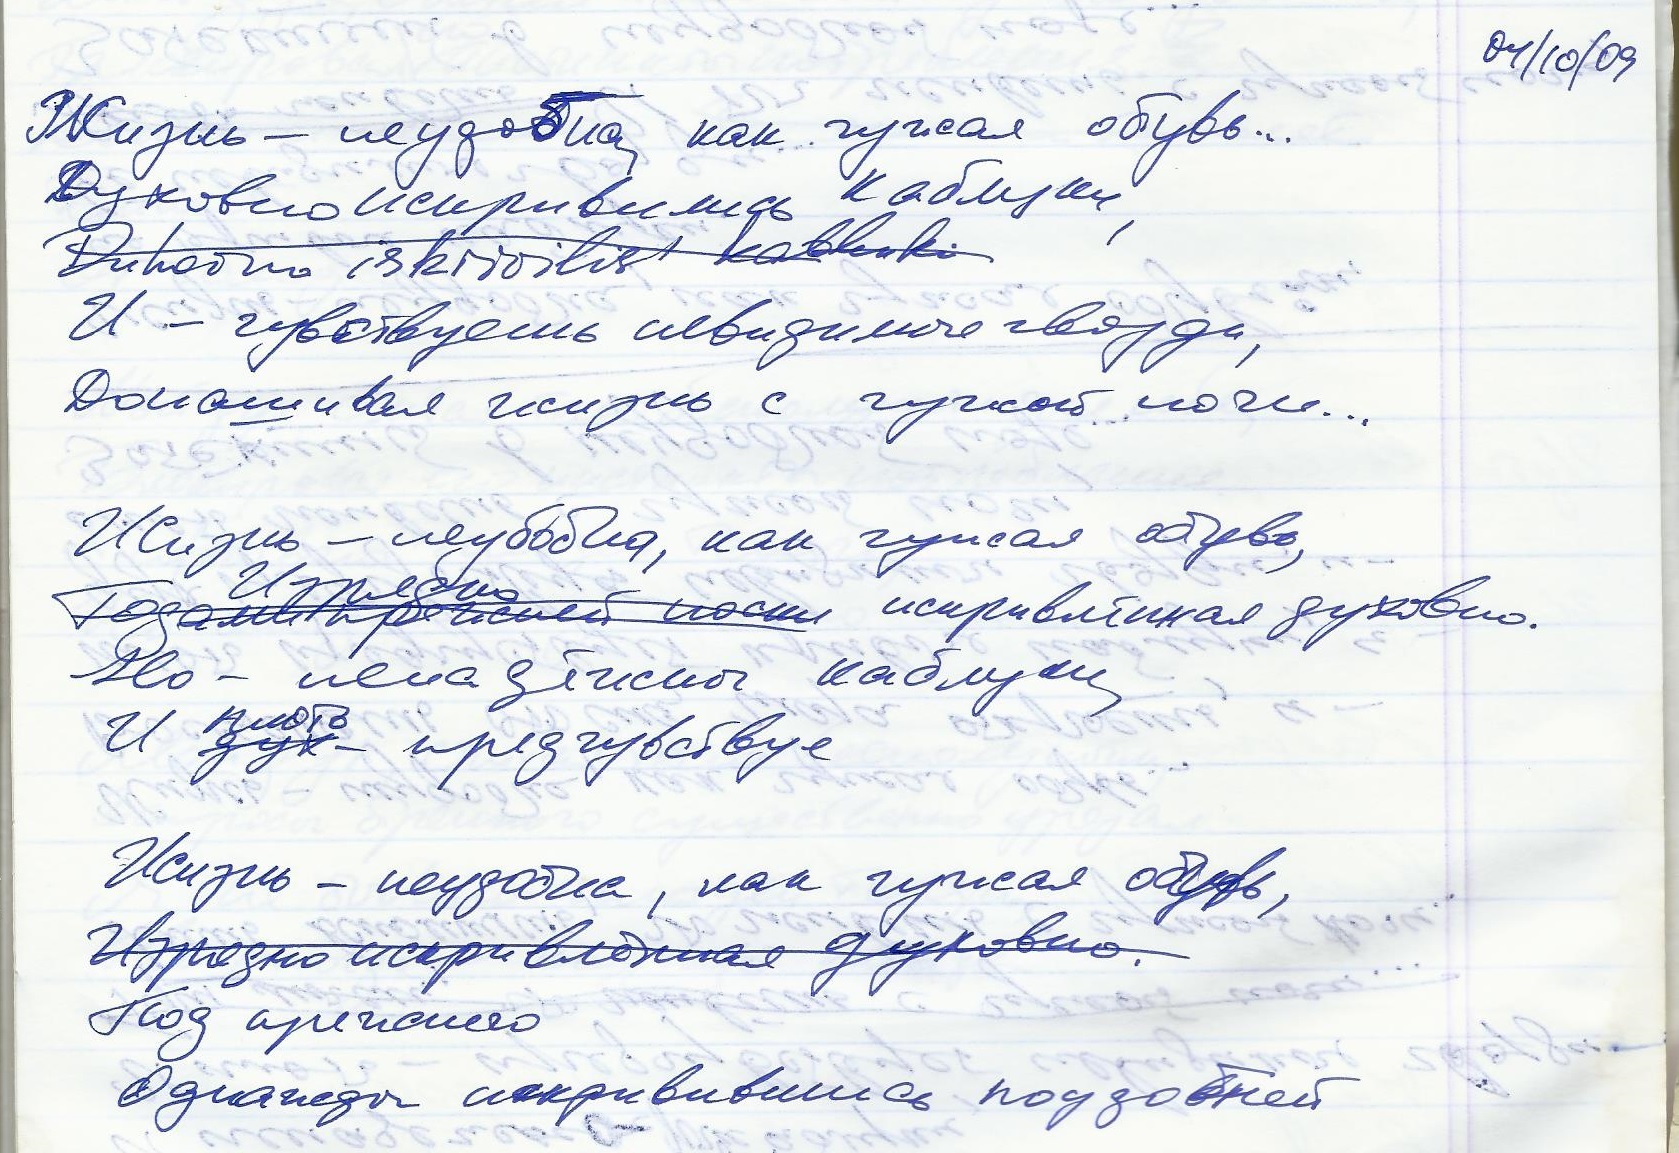 04/10/09
Жизнь – неудобна, как чужая обувь...
Духовно искривились каблуки,
Duhovno iskrivilis' kabluki
И – чувствуешь невидимые гвозди,
Донашивая жизнь с чужой ноги...
Жизнь – неудобна, как чужая обувь,
Изрядно
Годами прежней носки искривлённая духовно.
Но – ненадёжны каблуки,
плоть
И дух – предчувствуе
Жизнь – неудобна, как чужая обувь,
Изрядно искривлённая духовно.
Под прежнего
Однажды искривившись подзабней